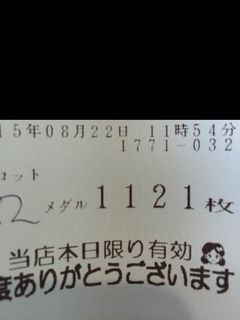 15年08月22日 11時54分
1771-032
ロット
2 メダル 1121枚
当店本日限り有効
度ありがとうございます